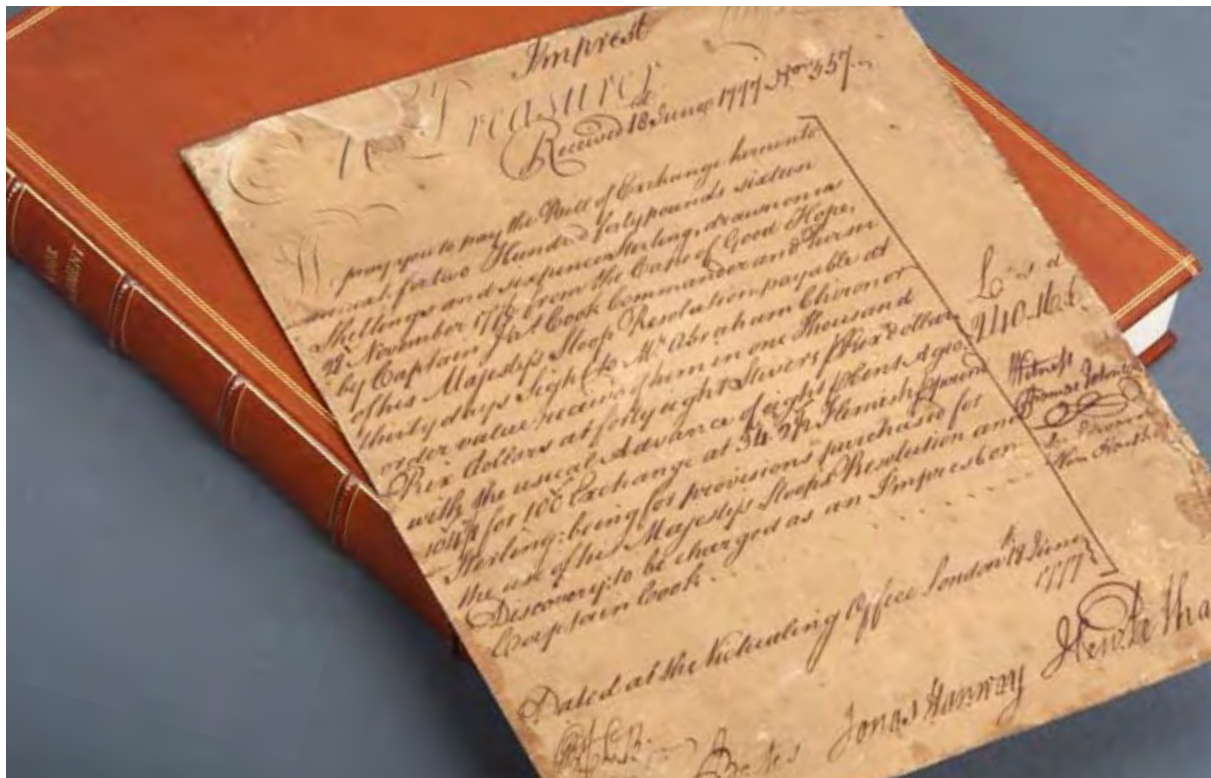 Imprest
Treasurer
Received 18 June 1777 N. 357
We pray you to pay the Bill of Exchange hereunto
annexed for two Hundred forty pounds sixteen
Shillings and sixpence Sterling, drawn on us
November from the Cape of Good Hope,
by Captain Jas. Cook Commander and Purser
of his Majesty's Sloop Resolution payable at
thirty days sight to Mr. Abraham Chiron or
order value received of him in one Thousand
Rix dollars at forty eight Stivers Rix dollar
with the usual Advance of eight Cent Ageo
for 100 Exchange at 34. Flemish
Sterling: being for provisions purchased for
the use of his Majesty's Sloops Resolution and
Discovery: to be charged as an Imprest on
Captain Cook
L s d
240.16.6
Witness
Dated at the Victualing Office London June
1777
Jonas Hanway